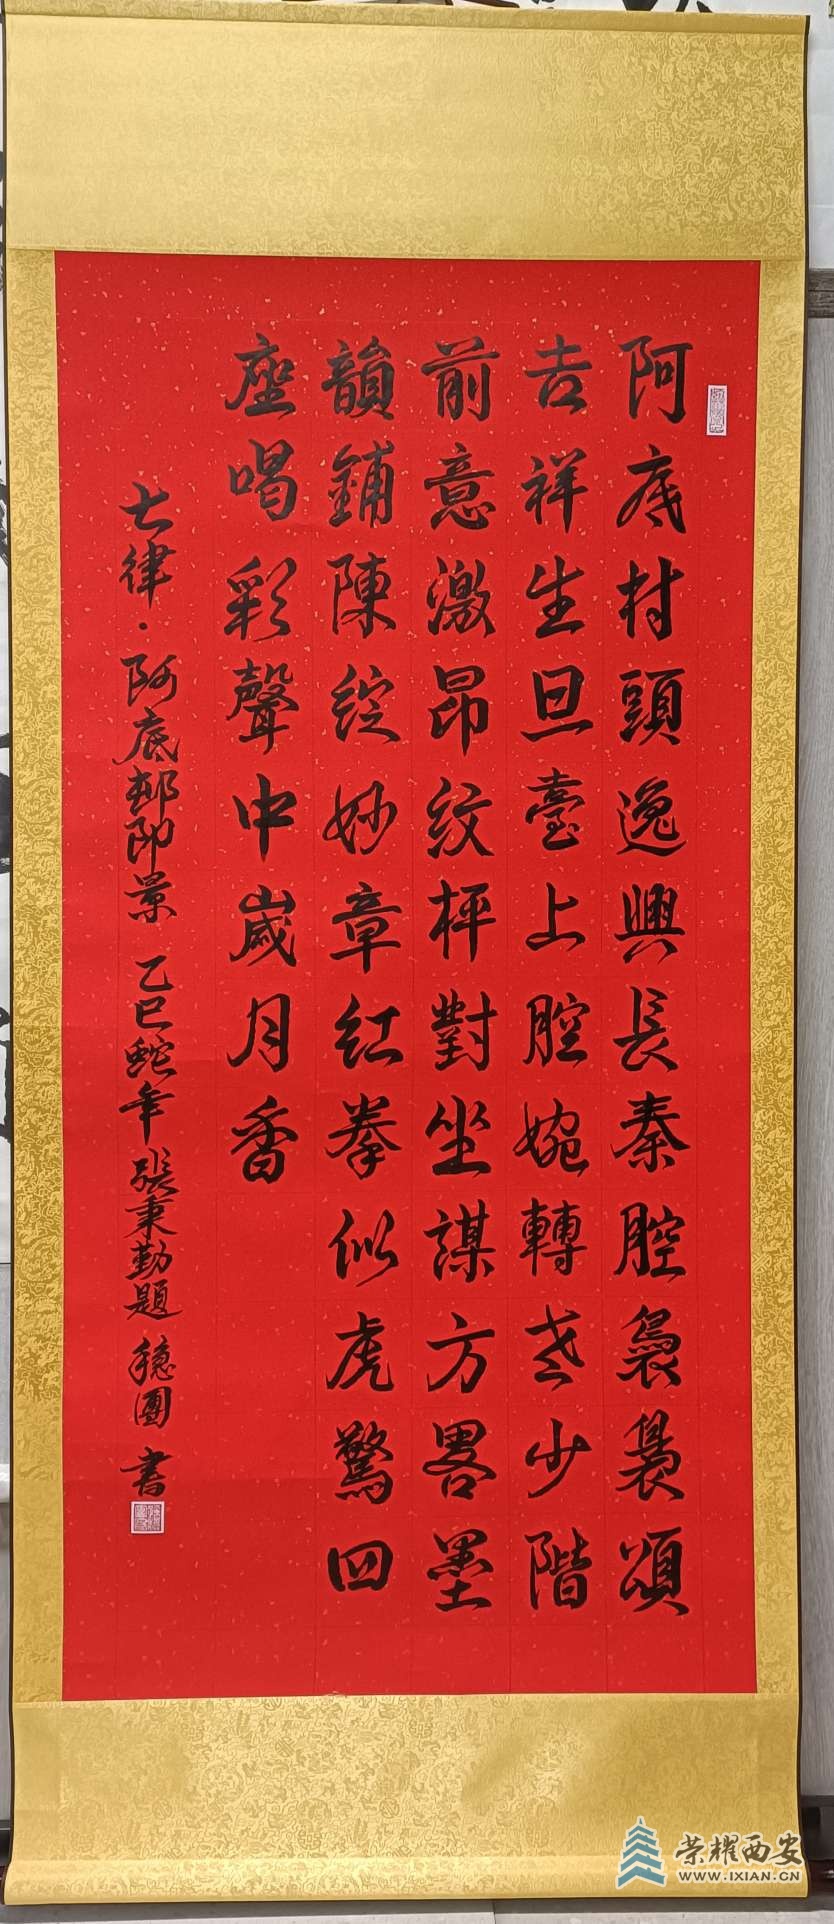 阿底村頭逸興長秦腔裊裊頌
吉祥生旦臺上腔婉轉老少階
前意激昂紋枰對坐謀方畧墨
韻鋪陳綻妙章紅拳似虎驚四
座喝彩聲中歲月香
七律·阿底邨即景 乙巳蛇年 張秉勤題 穩團 書
荣耀西安
WWW.IXIAN.CN